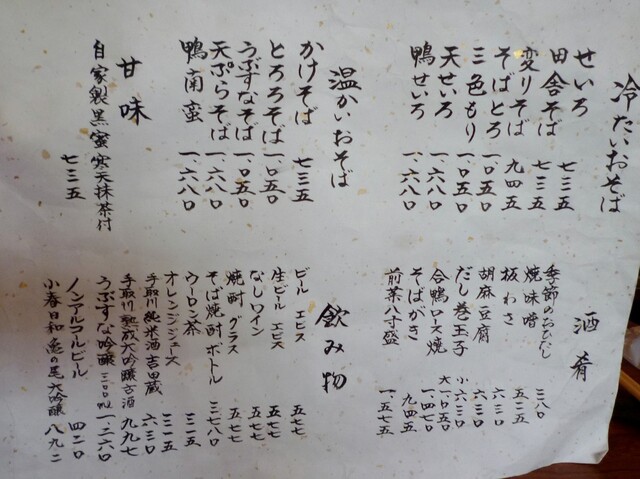 冷たいおそば
せいろ 七三五
田舎そば 七三五
変りそば 九四五
そばとろ 一、〇五〇
三色もり 一、〇五〇
天せいろ 一、六八〇
鴨せいろ 一、六八〇
温かいおそば
かけそば 七三五
とろろそば 一、〇五〇
うぶすなそば 一、〇五〇
天ぷらそば 一、六八〇
鴨南蛮 一、六八〇
甘味
自家製黒蜜寒天抹茶付 七三五
酒肴
季節のおひたし 三八〇
焼味噌 五二五
板わさ 六三〇
胡麻豆腐 六三〇
だし巻玉子 小六三〇 大一、〇五〇
合鴨ロース焼 一、四七〇
そばがき 九四五
前菜八寸盛 一、五七五
飲み物
ビール エビス 五七七
生ビール エビス 五七七
なしワイン 五七七
焼酎 グラス 五七七
そば焼酎 ボトル 三七八〇
ウーロン茶 三一五
オレンジジュース 三一五
手取川純米酒吉田蔵 六三〇
手取川熟成大吟醸古酒 九九七
うぶすな吟醸三〇〇ml 一、二六〇
ノンアルコールビール 四二〇
小春日和亀の尾大吟醸 八九二